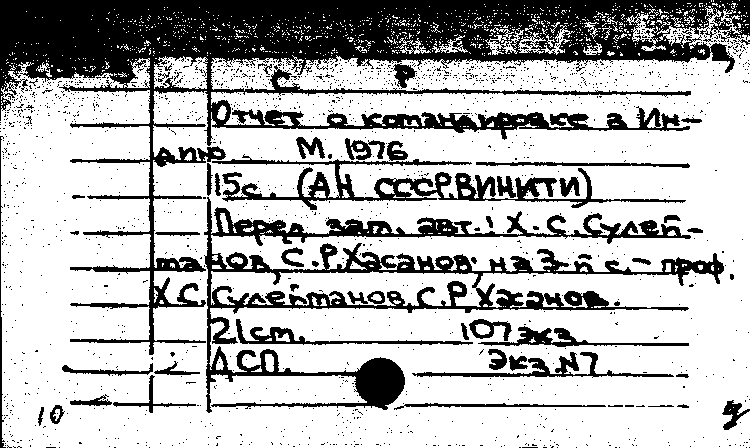 Хасанов,
С Р
Отчет о командировке в Ин-
дию М. 1976.
15с. (АН СССР.ВИНИТИ)
Перед заг. авт.: Х.С.Сулей-
манов, С.Р.Хасанов; на 3-й с.- проф.
Х.С.Сулейманов, С.Р.Хасанов.
21см. 107экз.
ДСП. Экз.N7.
10